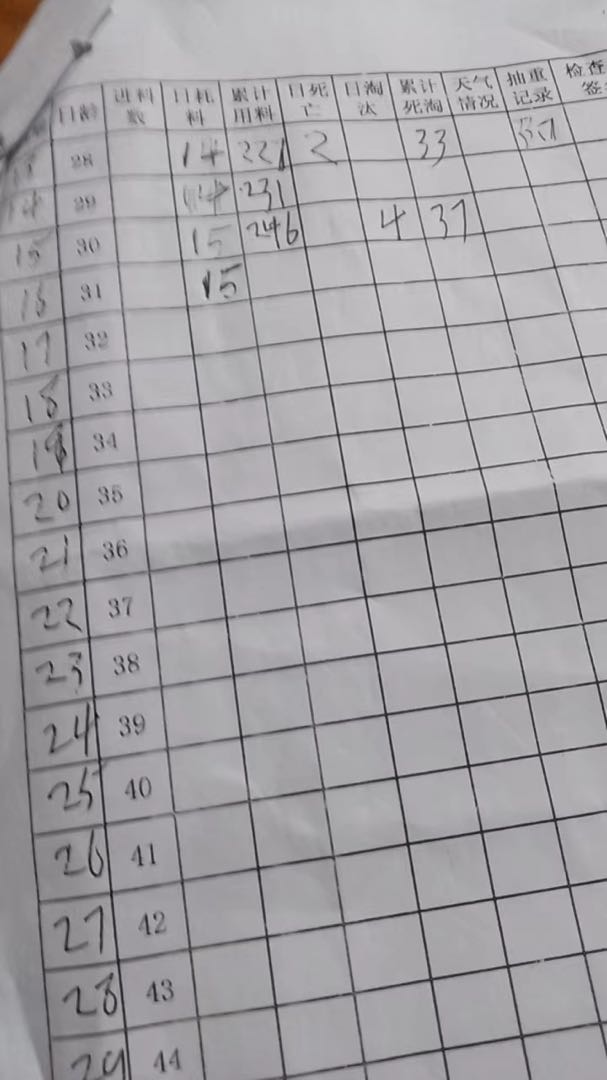 日龄 进料数 日耗料 累计用料 日死亡 日淘汰 累计死淘 天气情况 抽重记录 检查签
28 14 221 2 33
14 29 14 231
15 30 15 246 4 37
16 31 15
17 32
18 33
19 34
20 35
21 36
22 37
23 38
24 39
25 40
26 41
27 42
28 43
29 44